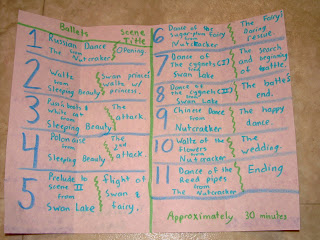 Ballets
Scene
Title
1 Russian Dance
The from
Nutcracker
Opening.
2 Waltz
from
Sleeping Beauty
Swan princess
waltz w/
princess.
3 Puss boots &
White cat
from
Sleeping Beauty
The
attack.
4 Polonaise
from
Sleeping Beauty
The
2nd
attack.
5 Prelude to
scene II
from
Swan Lake
flight of
swan &
fairy.
6 Dance of the
Sugar-plum fairy
from
Nutcracker
The Fairy!
Daring
rescue.
7 Dance of
The cygnets (I)
from
Swan Lake
The search
and beginning
of battle.
8 Dance of
the cygnets (II)
from
Swan Lake
The battle
end.
9 Chinese Dance
from
Nutcracker
The happy
dance.
10 Waltz of the
flowers
from
Nutcracker
The
wedding.
11 Dance of the
Reed pipes
from
The Nutcracker
Ending
Approximately 30 minutes